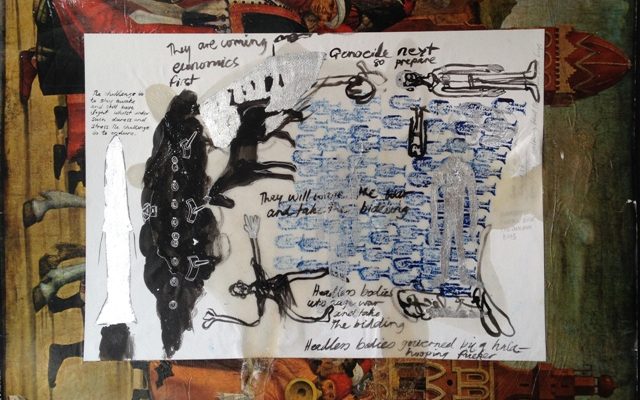 They are coming
economics
first
Genocide next
so prepare
The challenge is
to stay awake
and still have
light whilst under
such duress and
stress the challenge
is to endure.
They will the war
and take the bidding
Headless bodies
who war
and take
the bidding
Headless bodies governed by a hula-
hooping fucker